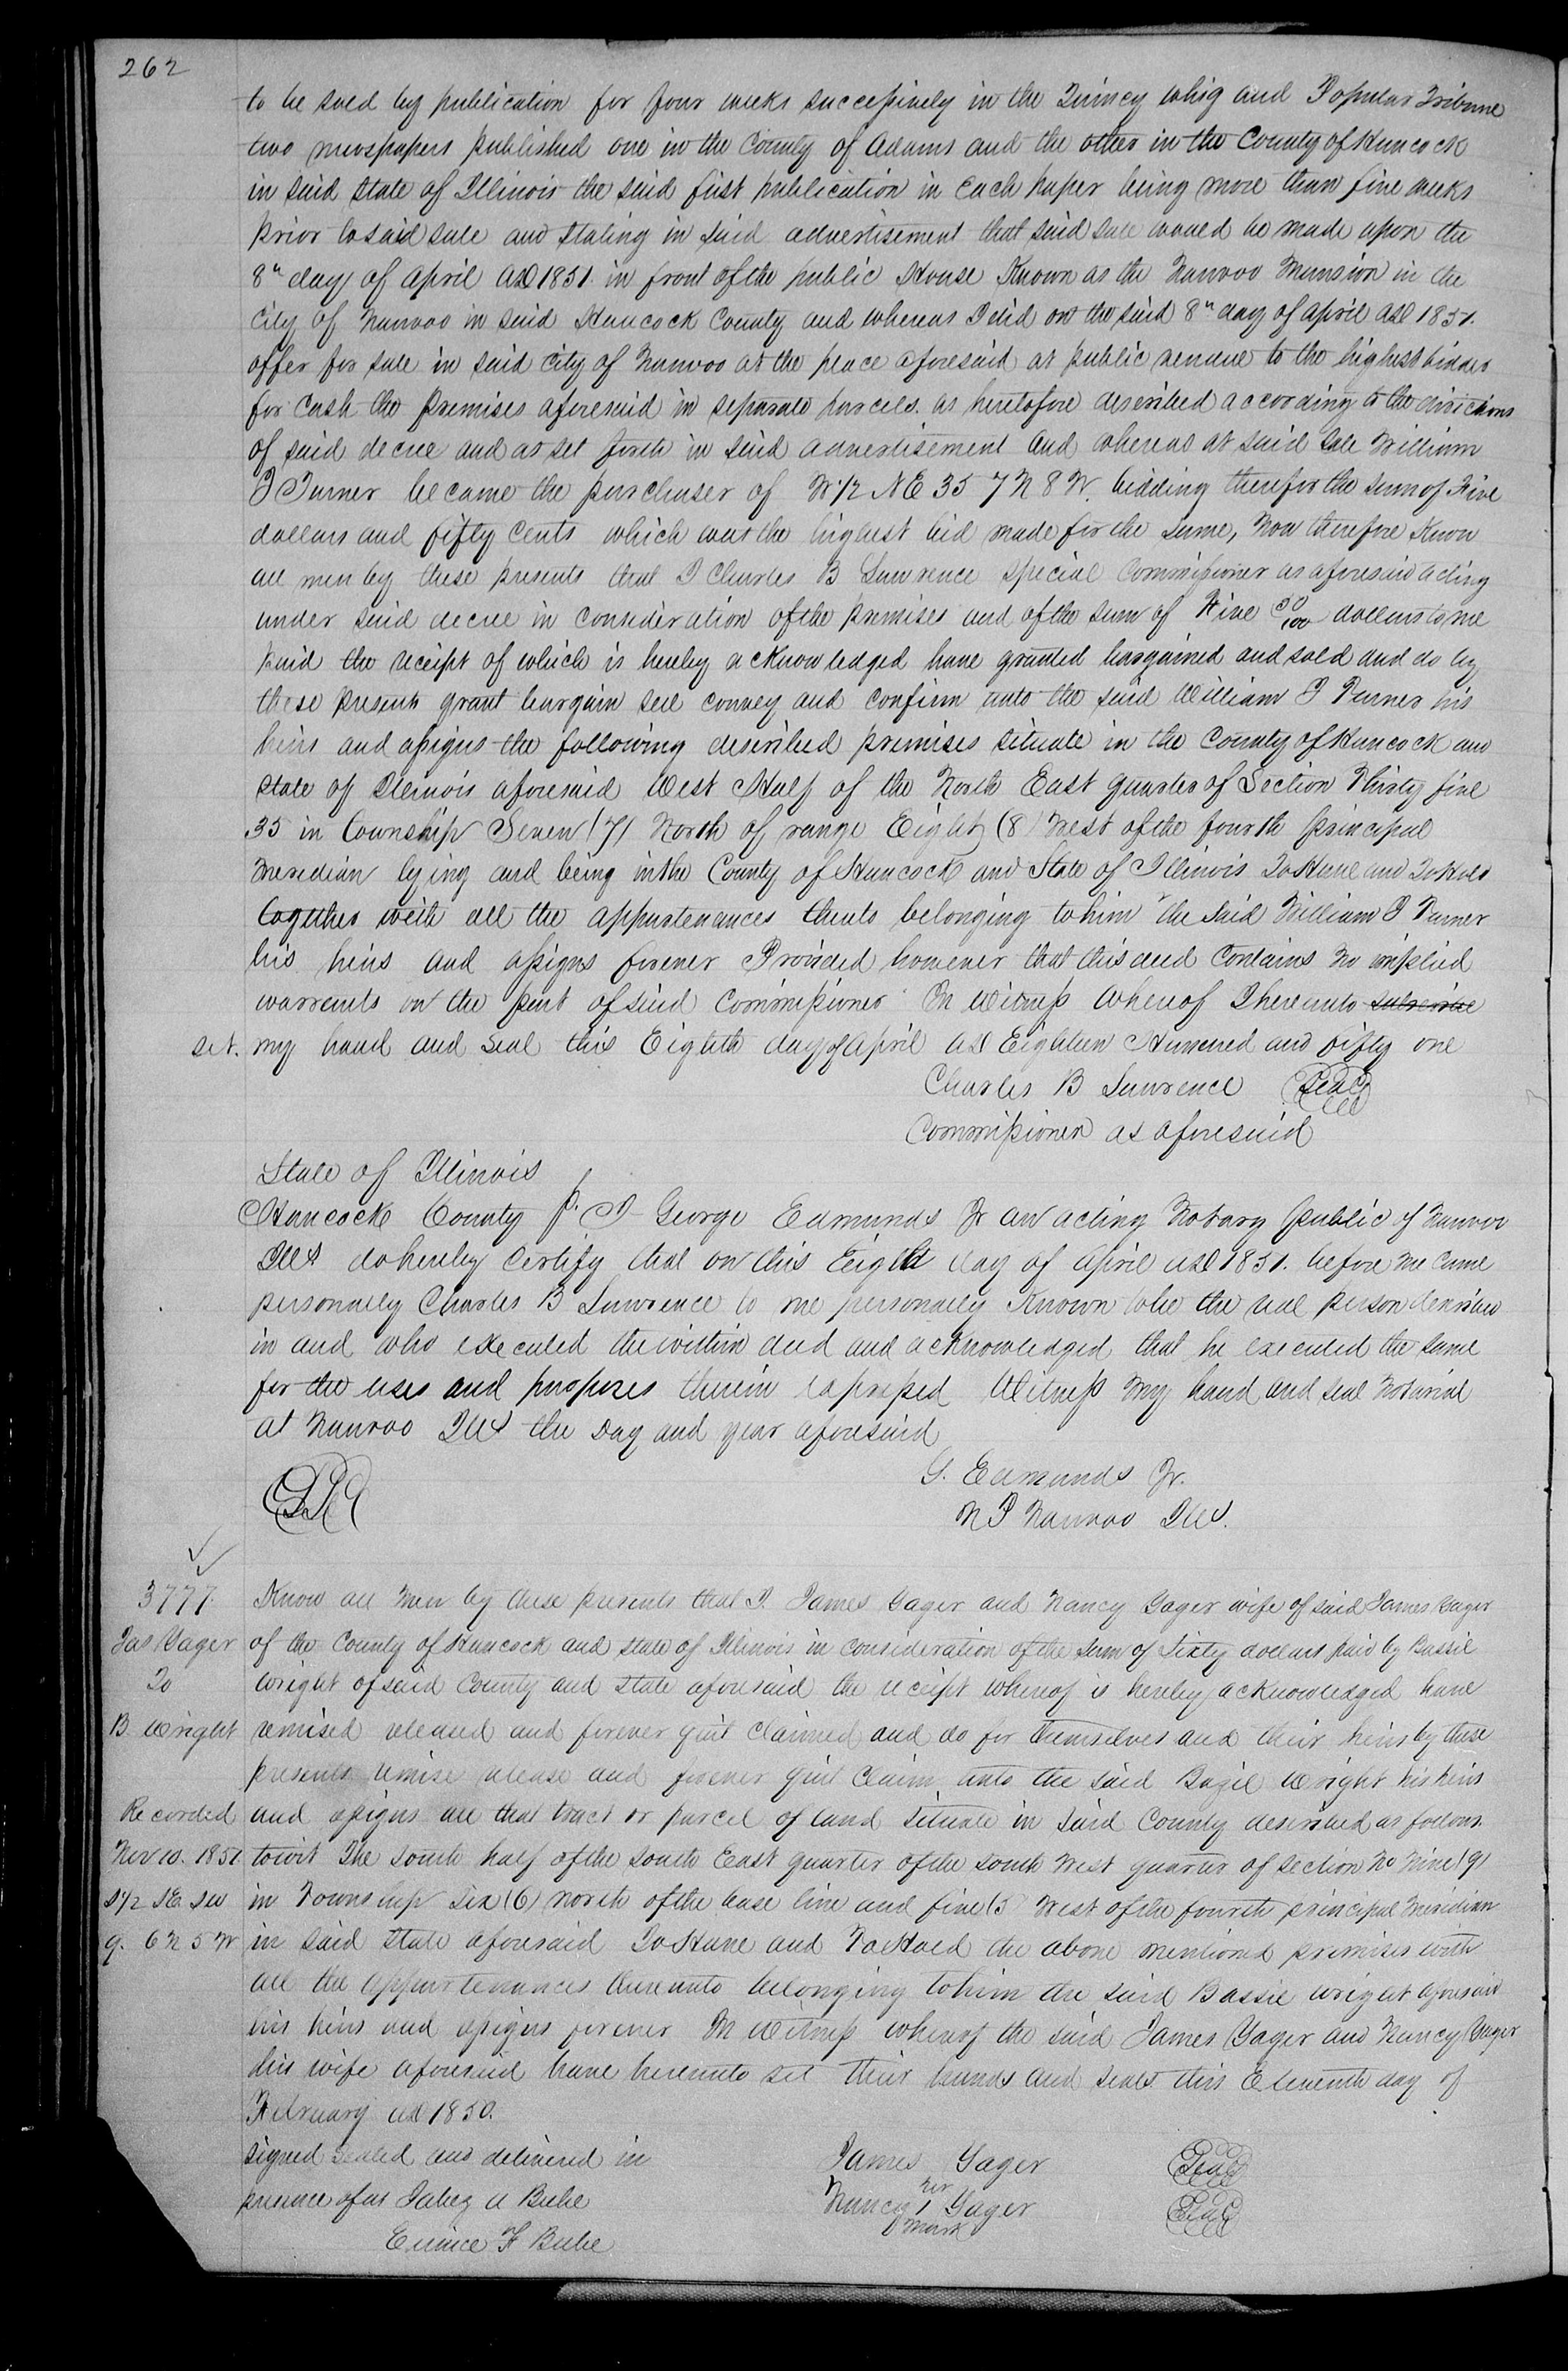 262
to be sold by publication for four weeks successively in the Quincy Whig and Popular Tribune
two newspapers published one in the County of Adams and the other in the County of Hancock
in said State of Illinois the said first publication in Each paper being more than five weeks
prior to said sale and stating in said advertisement that said sale would be made upon the
8th day of April AD 1851. in front of the public House Known as the Nauvoo Mansion in the
City of Nauvoo in said Hancock County and whereas I did on the said 8th day of April AD 1851.
offer for sale in said City of Nauvoo at the place aforesaid at public vendue to the highest bidder
for Cash the premises aforesaid in separate parcels. as heretofore described according to the directions
of said decree and as set forth in said advertisement and whereas at said sale William
P Turner became the purchaser of W 1/2 NE 35 7 N 8 W. bidding therefor the sum of Five
dollars and fifty Cents which was the highest bid made for the same, Now therefore Know
all men by these presents that I Charles B Lawrence Special Commissioner as aforesaid acting
under said decree in consideration of the premises and of the sum of Five 50/100 dollars to me
paid the receipt of which is hereby acknowledged have granted bargained and sold and do by
these presents grant bargain sell convey and confirm unto the said William P Turner his
heirs and assigns the following described premises situate in the County of Hancock and
State of Illinois aforesaid West Half of the North East quarter of Section Thirty five
35 in Township Seven (7) North of range Eight (8) West of the fourth principal
Meridian lying and being in the County of Hancock and State of Illinois To Have and To Hold
together with all the appurtenances thereto belonging to him the said William P Turner
his heirs and assigns forever Provided however that this deed Contains no implied
warrants on the part of said Commissioner In Witness Whereof I hereunto subscribe
set. my hand and seal this Eighth day of April AD Eighteen Hundred and fifty one
Charles B Lawrence Seal
Commissioner as aforesaid
State of Illinois
Hancock County ss. I George Edmunds Jr an acting Notary Public of Nauvoo
Ills do hereby Certify that on this Eight day of April AD 1851. before me came
personally Charles B Lawrence to me personally Known to be the real person described
in and who executed the within deed and acknowledged that he executed the same
for the uses and purposes therein expressed Witness my hand and seal Notarial
at Nauvoo Ills the day and year aforesaid
G. Edmunds Jr.
N P Nauvoo Ills.
3777. Know all Men by these presents that I. James Yager and Nancy Yager wife of said James Yager
Jas Yager of the County of Hancock and State of Illinois in consideration of the sum of Sixty dollars paid by Bassil
To Wright of said County and State aforesaid the receipt whereof is hereby acknowledged have
B. Wright remised released and forever quit Claimed and do for themselves and their heirs by these
presents remise release and forever quit Claim unto the said Bazil Wright his heirs
Recorded and assigns all that tract or parcel of land situate in said County described as follows.
Nov 10. 1851 towit The south half of the south East quarter of the south West quarter of section No Nine (9)
S 1/2 SE SW in Township Six (6) north of the base line and five (5) West of the fourth principal Meridian
9. 6 N 5 W in said State aforesaid To Have and To Hold the above mentioned premises with
all the appurtenances thereunto belonging to him the said Bassil Wright aforesaid
his heirs and assigns forever In Witness whereof the said James Yager and Nancy Yager
his wife aforesaid have hereunto set their hands and seals this Eleventh day of
February AD 1850.
signed sealed and delivered in James Yager Seal
presence of us Jabez A Beebe Nancy her mark Yager Seal
Eunice F Beebe